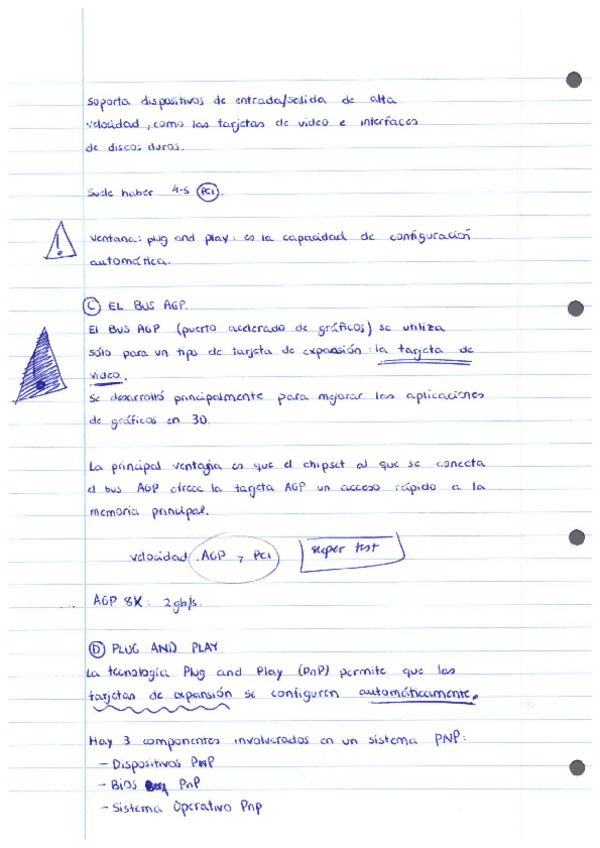 soporta dispositivos de entrada/salida de alta
velocidad, como las tarjetas de video e interfaces
de discos duros.
Suele haber 4-5 PCI.
! ventana: plug and play: es la capacidad de configuración
automática.
C EL BUS AGP.
El BUS AGP (puerto acelerado de gráficos) se utiliza
sólo para un tipo de tarjeta de expansión: la tarjeta de
video.
Se desarrolló principalmente para mejorar las aplicaciones
de gráficos en 3D.
La principal ventaja es que el chipset al que se conecta
el bus AGP ofrece la tarjeta AGP un acceso rápido a la
memoria principal.
velocidad AGP > PCI super test
AGP 8X: 2gb/s.
D PLUG AND PLAY
La tecnología Plug and Play (PnP) permite que las
tarjetas de expansión se configuren automáticamente.
Hay 3 componentes involucrados en un sistema PNP:
- Dispositivos PnP
- BIOS PnP
- Sistema Operativo Pnp